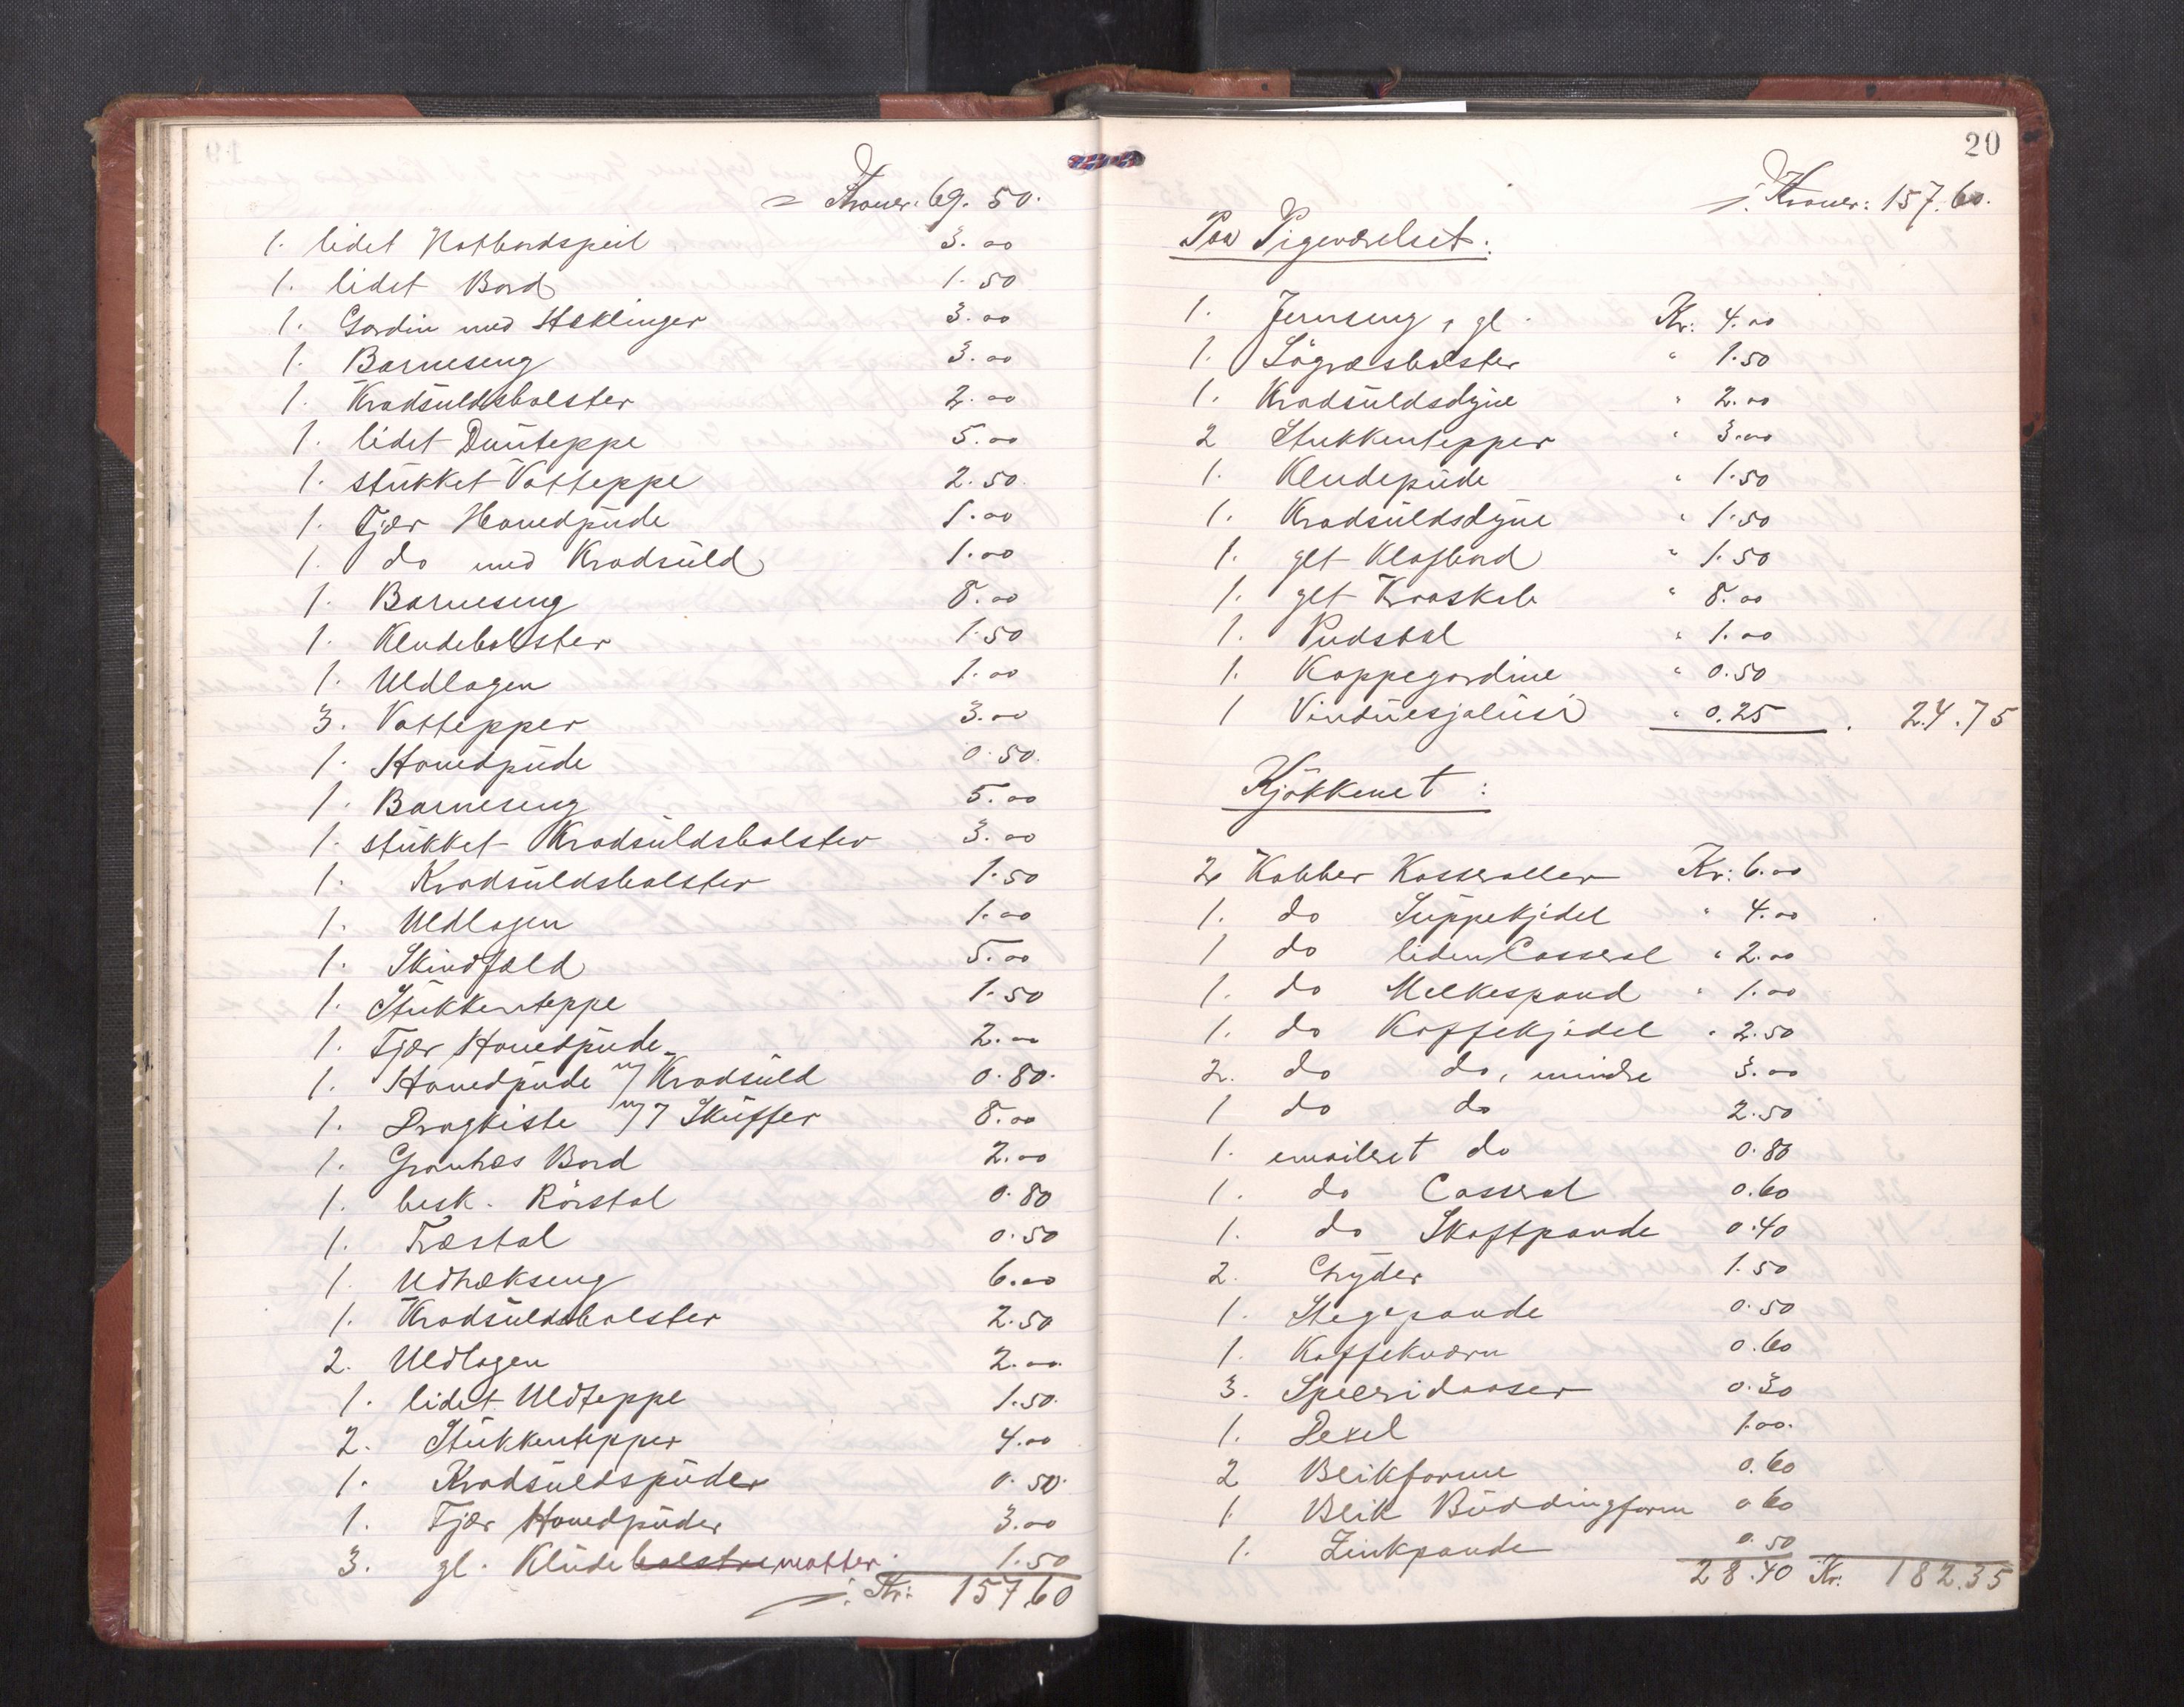 ÷ Kroner: 69. 50.
1. lidet Natbordspeil 3.00
1. lidet Bord 1.50
1. Gardin med Stæklinger 3.00
1. Barneseng 3.00
1. Kradsüldsbolster 2.00
1. lidet Dünteppe 5.00
1. stükket Vatteppe 2.50
1. Fjær Hovedpüde 1.00
1. do med Kradsüld 1.00
1. Barneseng 8.00
1. Kludebolster 1.50
1. Uldlagen 1.00
3. Vattepper 3.00
1. Hovedpüde 0.50
1. Barneseng 5.00
1. stükket Kradsüldsbolster 3.00
1. Kradsüldsbolster 1.50
1. Uldlagen 1.00
1. Skindfeld 5.00
1. Stükkenteppe 1.50
1. Fjær Hovedpüde 2.00
1. Hovedpüde m/ Kradsüld 0.80
1. Dragkiste m/ 7 Sküffer 8.00
1. Grantræs Bord 2.00
1. besk. Rörstol 0.80
1. Træstol 0.50
1. Udtrækseng 6.00
1. Kradsüldsbolster 2.50
2. Uldlagen 2.00
1. lidet Uldteppe 1.50
2. Stükkentepper 4.00
1. Kradsüldspüder 0.50
1. Fjær Hovedpüder 3.00
3. gl. Klüdebolstre matter 1.50
÷ Kr: 157.60
20
÷ Kroner: 157.60.
Paa Pigeværelset:
1. Jernseng, gl. Kr: 4.00
1. Sögræsbolster " 1.50
1. Kradsüldsdyne " 2.00
2 Stukkentepper " 3.00
1. Kludepüde " 1.50
1. Kradsüldsdyne " 1.50
1. glt Klafbord " 1.50
1. glt Kroskab " 8.00
1. Pudstol " 1.00
1. Kappegardine " 0.50
1 Vindüesjalüsi " 0.25 . 24.75
Kjökkenet:
2 Kobber Kasseroller Kr: 6.00
1. do Süppekjedel " 4.00
1 do liden Casserol " 2.00
1. do Melkespand " 1.00
1. do Kaffekjedel " 2.50
2. do do, mindre 3.00
1 do do 2.50
1. emaileret do 0.80
1. do Casserol 0.60
1. do Skaftpande 0.40
2. Gryder 1.50
1. Stegepande 0.50
1. Kaffekværn 0.60
3. Speceridaaser 0.30
1. Dexel 1.00.
2 Blikforme 0.60
1. Blik Büddingform 0 60
1. Zinkpande 0.50
28.40 Kr: 182.35